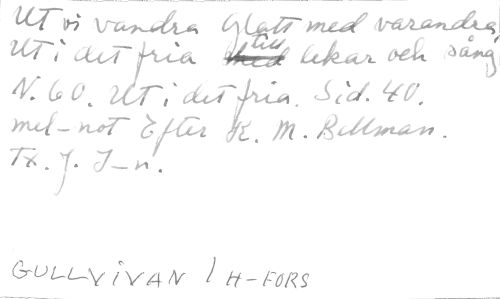 Ut vi vandra Glatt med varandra,
Ut i det fria till lekar och sång
N. 60. Ut i det fria. Sid. 40.
mel-not Efter K. M. Bellman.
Tx. J. J-n.
GULLVIVAN / H-FORS